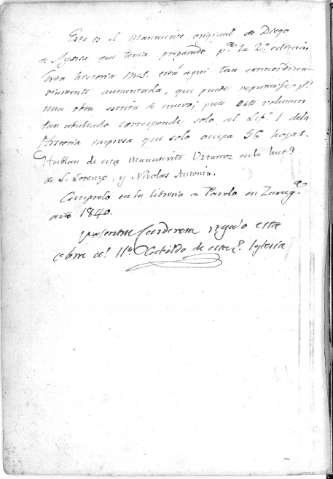 Este es el manuscrito original de Diego
de Aynsa que tenia preparado p.ª la 2.ª edicion
Esta historia M.S. está aqui tan extraordina-
riamente aumentada, que puede reputarse p.r
una obra escrita de nuevo; pues este volumen
tan abultado corresponde solo al Lib.º 1 de la
Historia impresa que solo ocupa 56 hojas.
Hablan de este manuscrito Uztarroz en la
de S. Lorenzo, y Nicolas Antonio.
Comprelo en la libreria de en Zarag.ª
año 1840.
regaló esta
obra al Il.e Cabildo de esta S. Iglesia